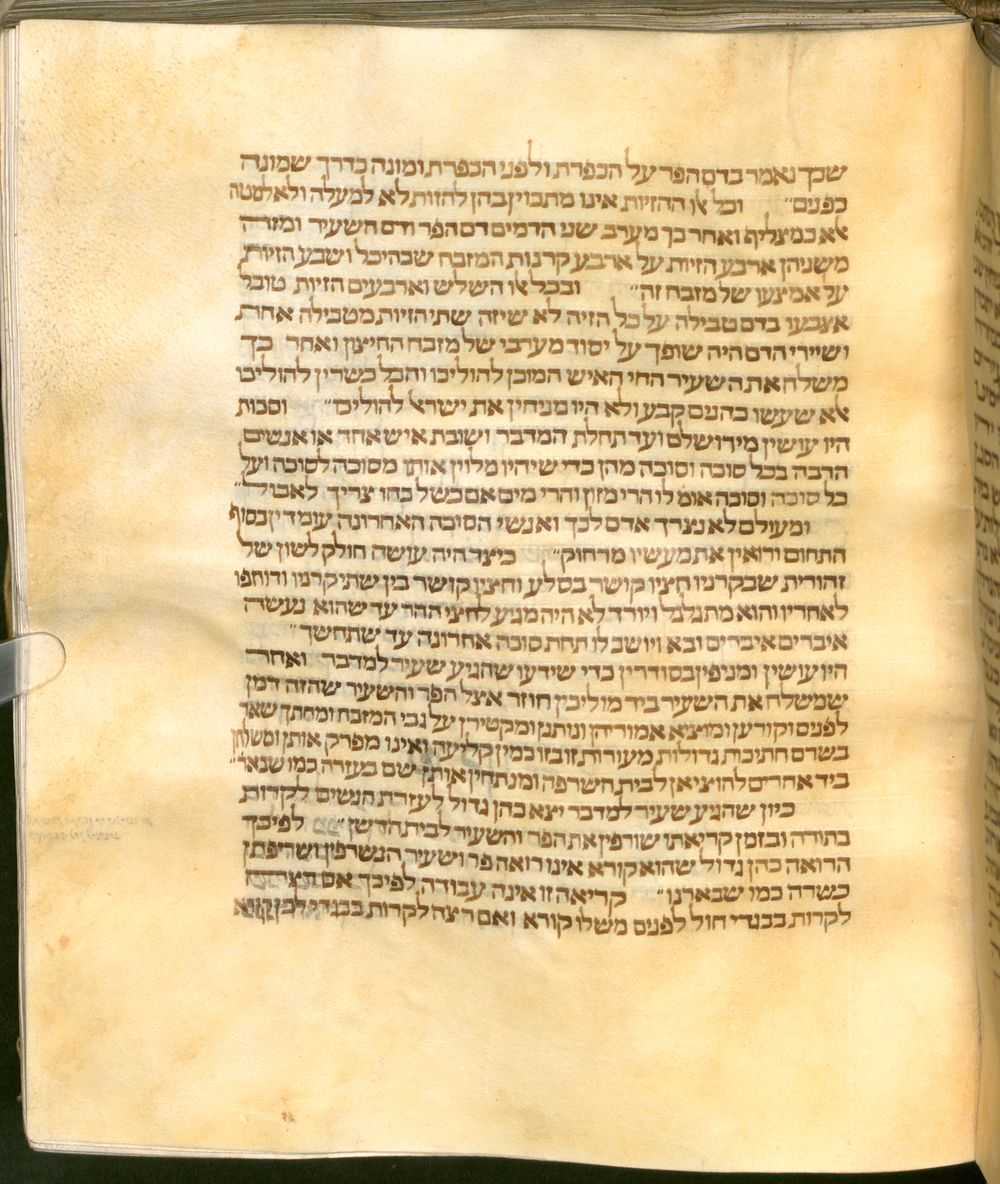 שכך נאמר בדם הפר על הכפרת ולפני הכפרת ומונה כדרך שמונה
בפנים״ וכל אלו ההזיות אינו מתכוין בהן להזות לא למעלה ולא למטה
אלא כמצליף ואחר כך מערב שני הדמים דם הפר ודם השעיר ומזה
משניהן ארבע הזיות על ארבע קרנות המזבח שבהיכל ושבע הזיות
על אמצעו של מזבח זה״ ובכל אלו השלש וארבעים הזיות טובל
אצבעו בדם טבילה על כל הזיה לא שיזה שתי הזיות מטבילה אחת
ושיירי הדם היה שופך על יסוד מערבי של מזבח החיצון ואחר כך
משלח את השעיר החי האיש המוכן להוליכו והכל כשרין להוליכו
אלא שעשו כהנים קבע ולא היו מניחין את ישראל להוליכו״ וסכות
היו עושין מירושלם ועד תחלת המדבר ושובת איש אחד או אנשים
הרבה בכל סוכה וסוכה מהן כדי שיהיו מלוין אותו מסוכה לסוכה ועל
כל סוכה וסוכה אומ׳ לו הרי מזון והרי מים אם כשל כחו צריך לאכול״
ומעולם לא נצרך אדם לכך ואנשי הסוכה האחרונה עומדין בסוף
התחום ורואין את מעשיו מרחוק״ כיצד היה עושה חולק לשון של
זהורית שבקרניו חציו קושר בסלע וחציו קושר בין שתי קרניו ודוחפו
לאחריו והוא מתגלגל ויורד לא היה מגיע לחצי ההר עד שהוא נעשה
איברים איברים ובא ויושב לו תחת סוכה אחרונה עד שתחשך״
היו עושין ומניפין בסודרין כדי שידעו שהגיע שעיר למדבר ואחר
שמשלח את השעיר ביד מוליכו חוזר אצל הפר והשעיר שהזה דמן
לפנים וקורען ומוציא אמוריהן ונותנן ומקטירן על גבי המזבח ומחתך שאר
בשרם חתיכות גדולות מעורות זו בזו כמין קליעה ואינו מפרק אותן ומשלחן
ביד אחרים להוציאן לבית השרפה ומנתחין אותן שם בעורה כמו שבאר״
כיון שהגיע שעיר למדבר יצא כהן גדול לעזרת הנשים לקרות
בתורה ובזמן קריאתו שורפין את הפר והשעיר לבית הדשן״ לפיכך
הרואה כהן גדול שהוא קורא אינו רואה פר ושעיר הנשרפין ושריפתן
כשרה כמו שבארנו״ קריאה זו אינה עבודה לפיכך אם רצה
לקרות בבגדי חול לפנים משלו קורא ואם רצה לקרות בבגדי לבן קורא